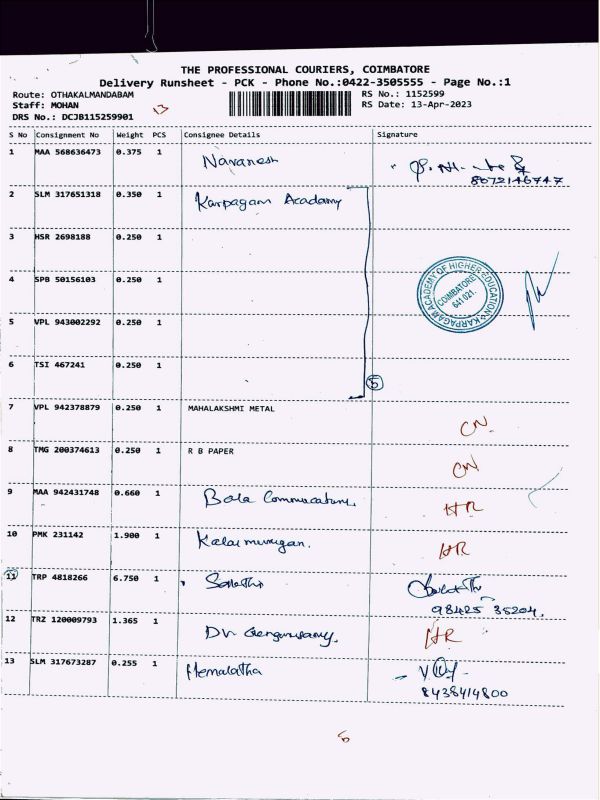 THE PROFESSIONAL COURIERS, COIMBATORE
Delivery Runsheet - PCK - Phone No.:0422-3505555 - Page No.:1
Route: OTHAKALMANDABAM RS No.: 1152599
Staff: MOHAN 13 RS Date: 13-Apr-2023
DRS No.: DCJB115259901
S No Consignment No Weight PCS Consignee Details Signature
1 MAA 568636473 0.375 1 Navanesh
8072146747
2 SLM 317651318 0.350 1 Karpagam Academy
3 HSR 2698188 0.250 1
4 SPB 50156103 0.250 1
KARPAGAM ACADEMY OF HIGHER EDUCATION
COIMBATORE
641 021.
5 VPL 943002292 0.250 1
6 TSI 467241 0.250 1
5
7 VPL 942378879 0.250 1 MAHALAKSHMI METAL CN
8 TMG 200374613 0.250 1 R B PAPER CN
9 MAA 942431748 0.660 1 Bala HR
10 PMK 231142 1.900 1 Kalaimurugan. HR
11 TRP 4818266 6.750 1
98425 35204.
12 TRZ 120009793 1.365 1 Dr. HR
13 SLM 317673287 0.255 1 Hemalatha
8438414800